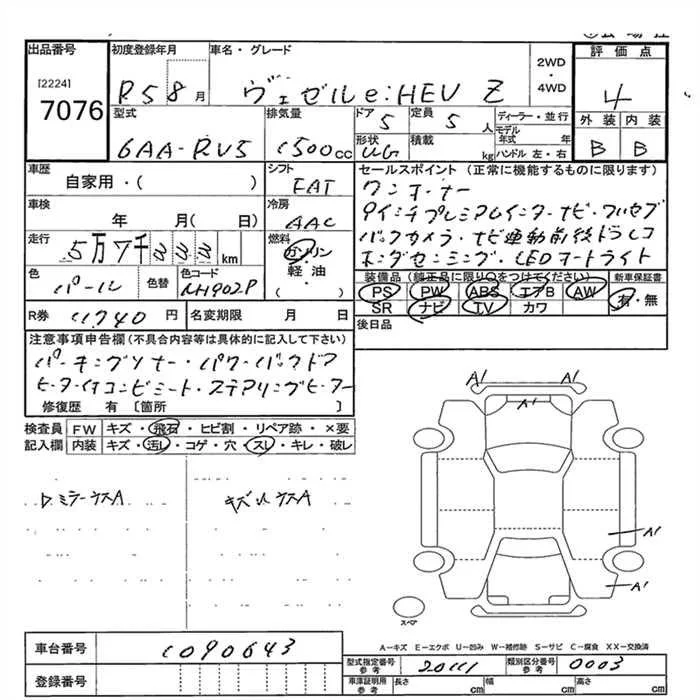 出品番号
[2224]
7076
初度登録年月
R5 8月
車名・グレード
ヴェゼル e:HEV Z
2WD
・
4WD
評価点
4
外装 内装
B B
型式
6AA-RV5
排気量
1500cc
ドア
5
定員
5人
ディーラー・並行
モデル年式 年
ハンドル 左・右
形状
UG
積載
kg
車歴
自家用・( )
シフト
FAT
車検
年 月( 日)
冷房
AAC
走行
5万7千 km
燃料
ガソリン
・
軽油
( )
色
パール
色替
色コード
NH902P
R券
11740円
名変期限 月 日
セールスポイント (正常に機能するものに限ります)
ワンオーナー
9インチプレミアムインターナビ・フルセグ
バックカメラ・ナビ連動前後ドラレコ
ホンダセンシング・LEDオートライト
装備品(純正品に限り○をつけてください)
PS PW ABS エアB AW
SR ナビ TV カワ
新車保証書
有・無
後日品
注意事項申告欄(不具合内容等は具体的に記入して下さい)
パーキングソナー・パワーバックドア
ヒーター付コンビシート・ステアリングヒーター
修復歴 有 〔箇所 〕
検査員記入欄
FW キズ・飛石・ヒビ割・リペア跡・×要
内装 キズ・汚レ・コゲ・穴・スレ・キレ・破レ
ミラーウスA
キズ ウスA
A1 A1
A1
A1
A1
スペア
A-キズ E-エクボ U-凹み W-補修跡 S-サビ C-腐食 XX-交換済
車台番号
1090643
登録番号
型式指定番号
参考
20111
類別区分番号
参考
0003
車庫証明用
参考
長さ cm
幅 cm
高さ cm